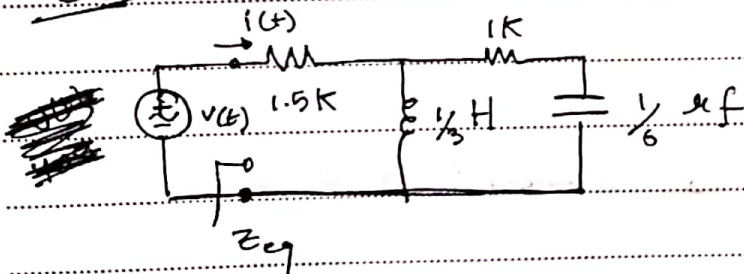 i(t)
1K
v(t) 1.5K ⅓ H ⅙ μf
Zeq